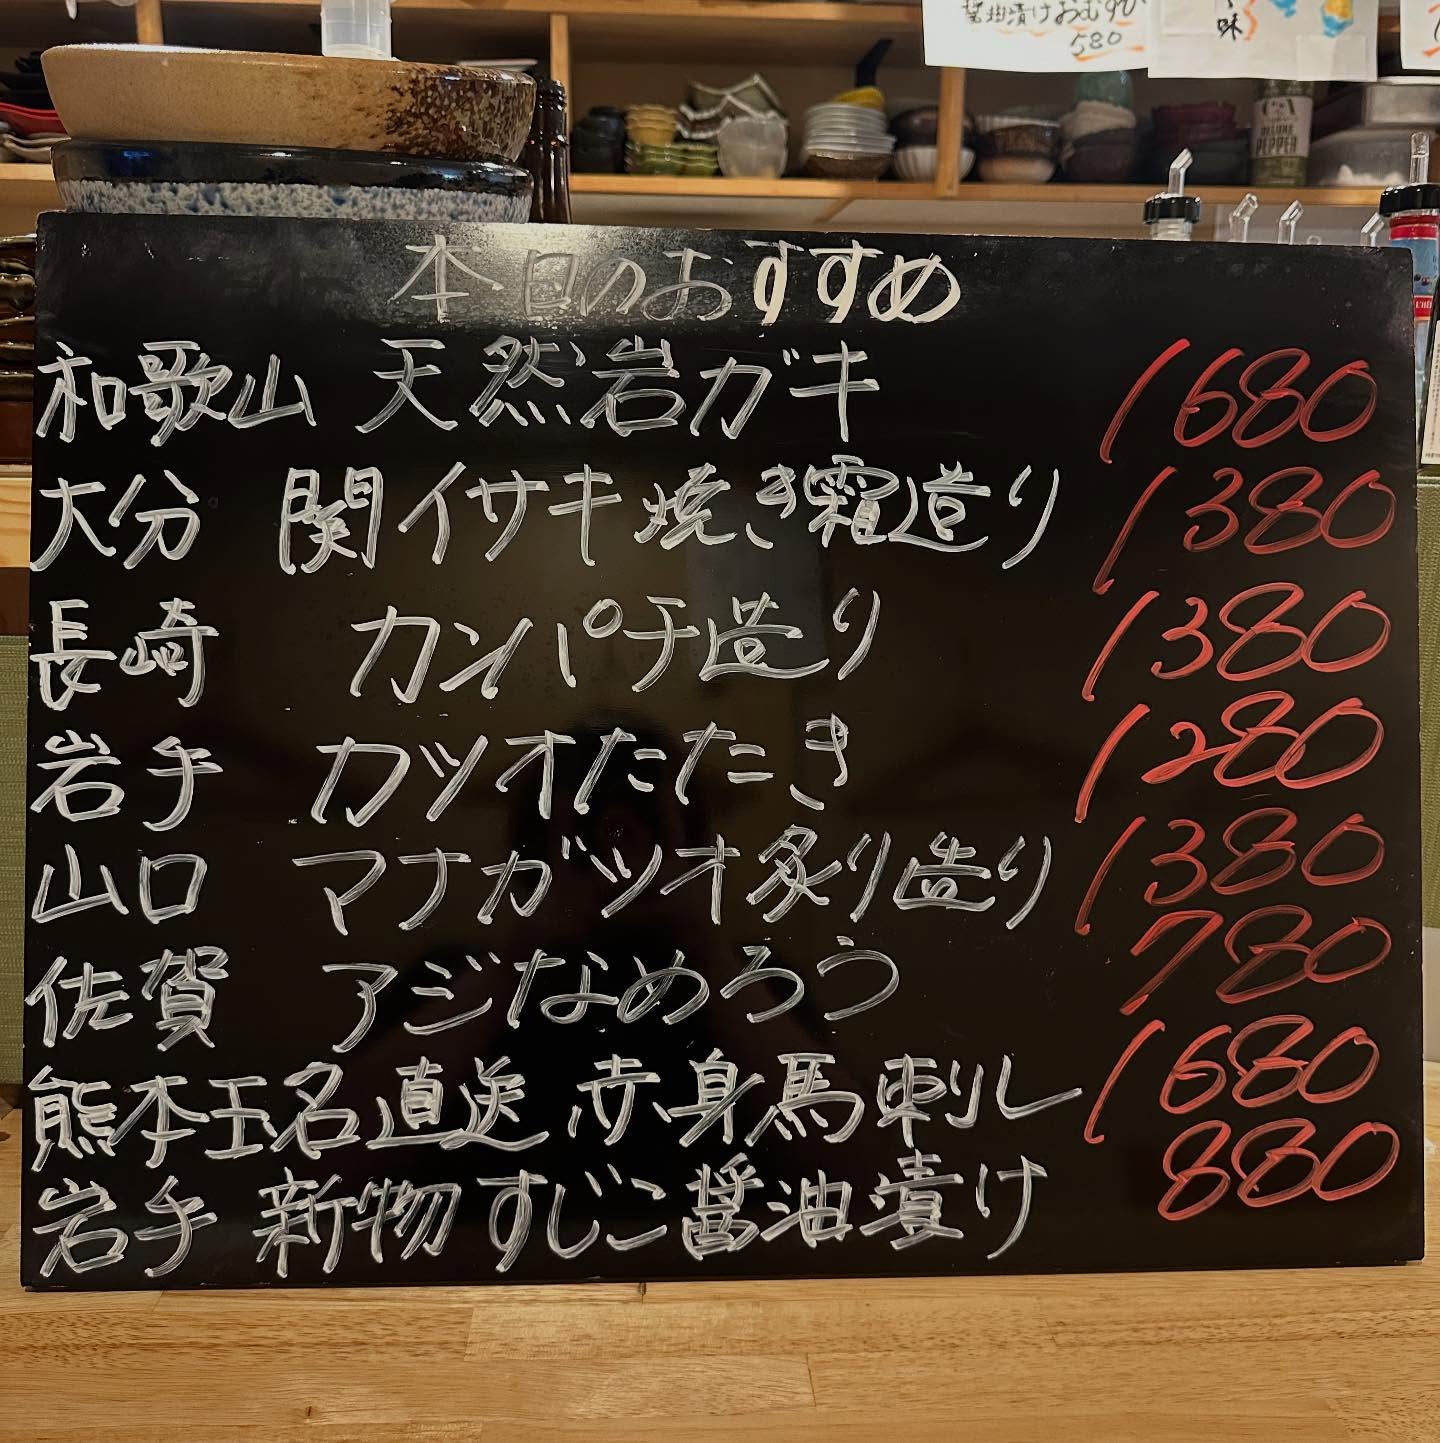 醤油漬けおむすび
580
味
DELUXE
PEPPER
本日のおすすめ
和歌山 天然岩ガキ 1680
大分 関イサキ焼き霜造り 1380
長崎 カンパチ造り 1380
岩手 カツオたたき 1280
山口 マナガツオ炙り造り 1380
佐賀 アジなめろう 780
熊本玉名直送 赤身馬刺し 1680
岩手 新物すじこ醤油漬け 880